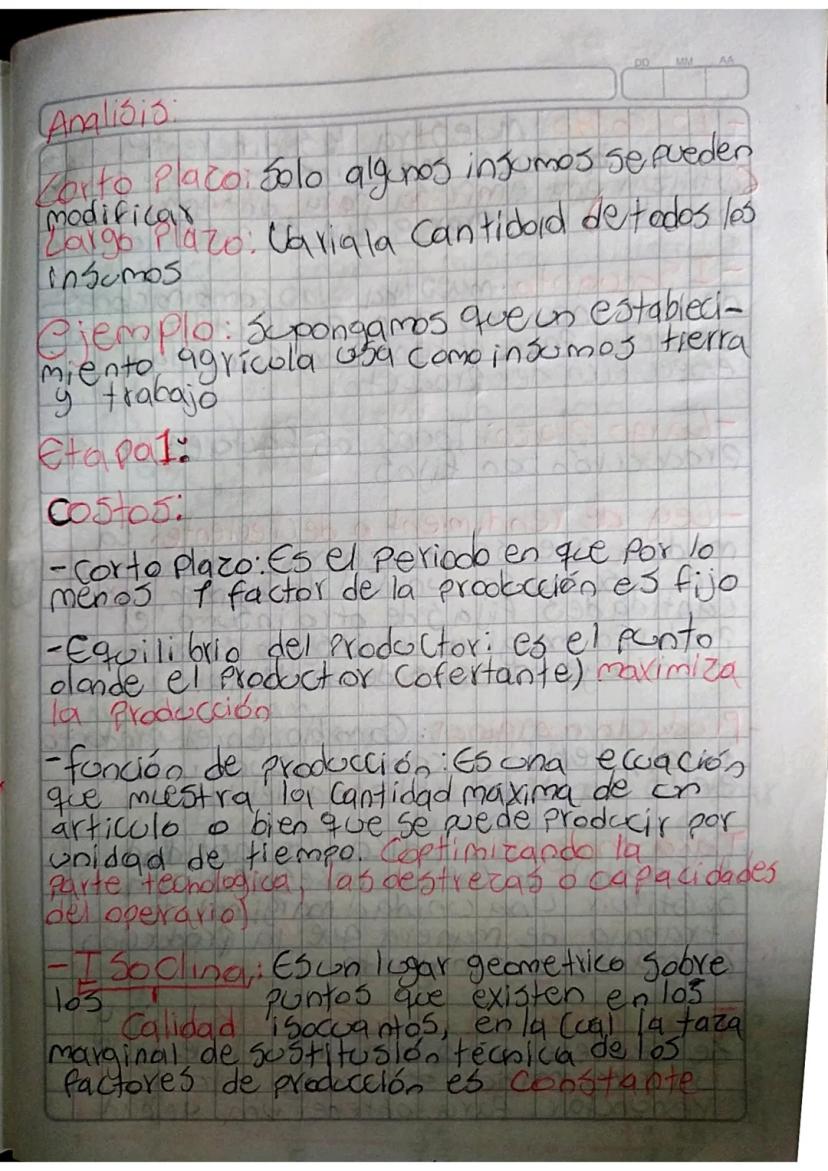 DD MM AA
Analisis:
Corto Plazo: Solo algunos insumos se pueden
modificar
Largo Plazo: Varia la Cantidad de todos los
insumos
Ejemplo: Supongamos que un estableci-
miento agrícola usa como insumos tierra
y trabajo
Etapa 1:
Costos:
- corto plazo: Es el periodo en que por lo
menos 1 factor de la producción es fijo
- Equilibrio del Productor: es el punto
donde el Productor (ofertante) maximiza
la Producción
- función de producción: Es una ecuación
que muestra la cantidad maxima de un
articulo o bien que se puede Producir por
unidad de tiempo. (optimizando la
parte tecnologica, las destrezas o capacidades
del operario)
- ISoclina: Es un lugar geometrico sobre
los puntos que existen en los
Calidad isocuantos, en la cual la taza
marginal de sustitusión técnica de los
factores de producción es Constante